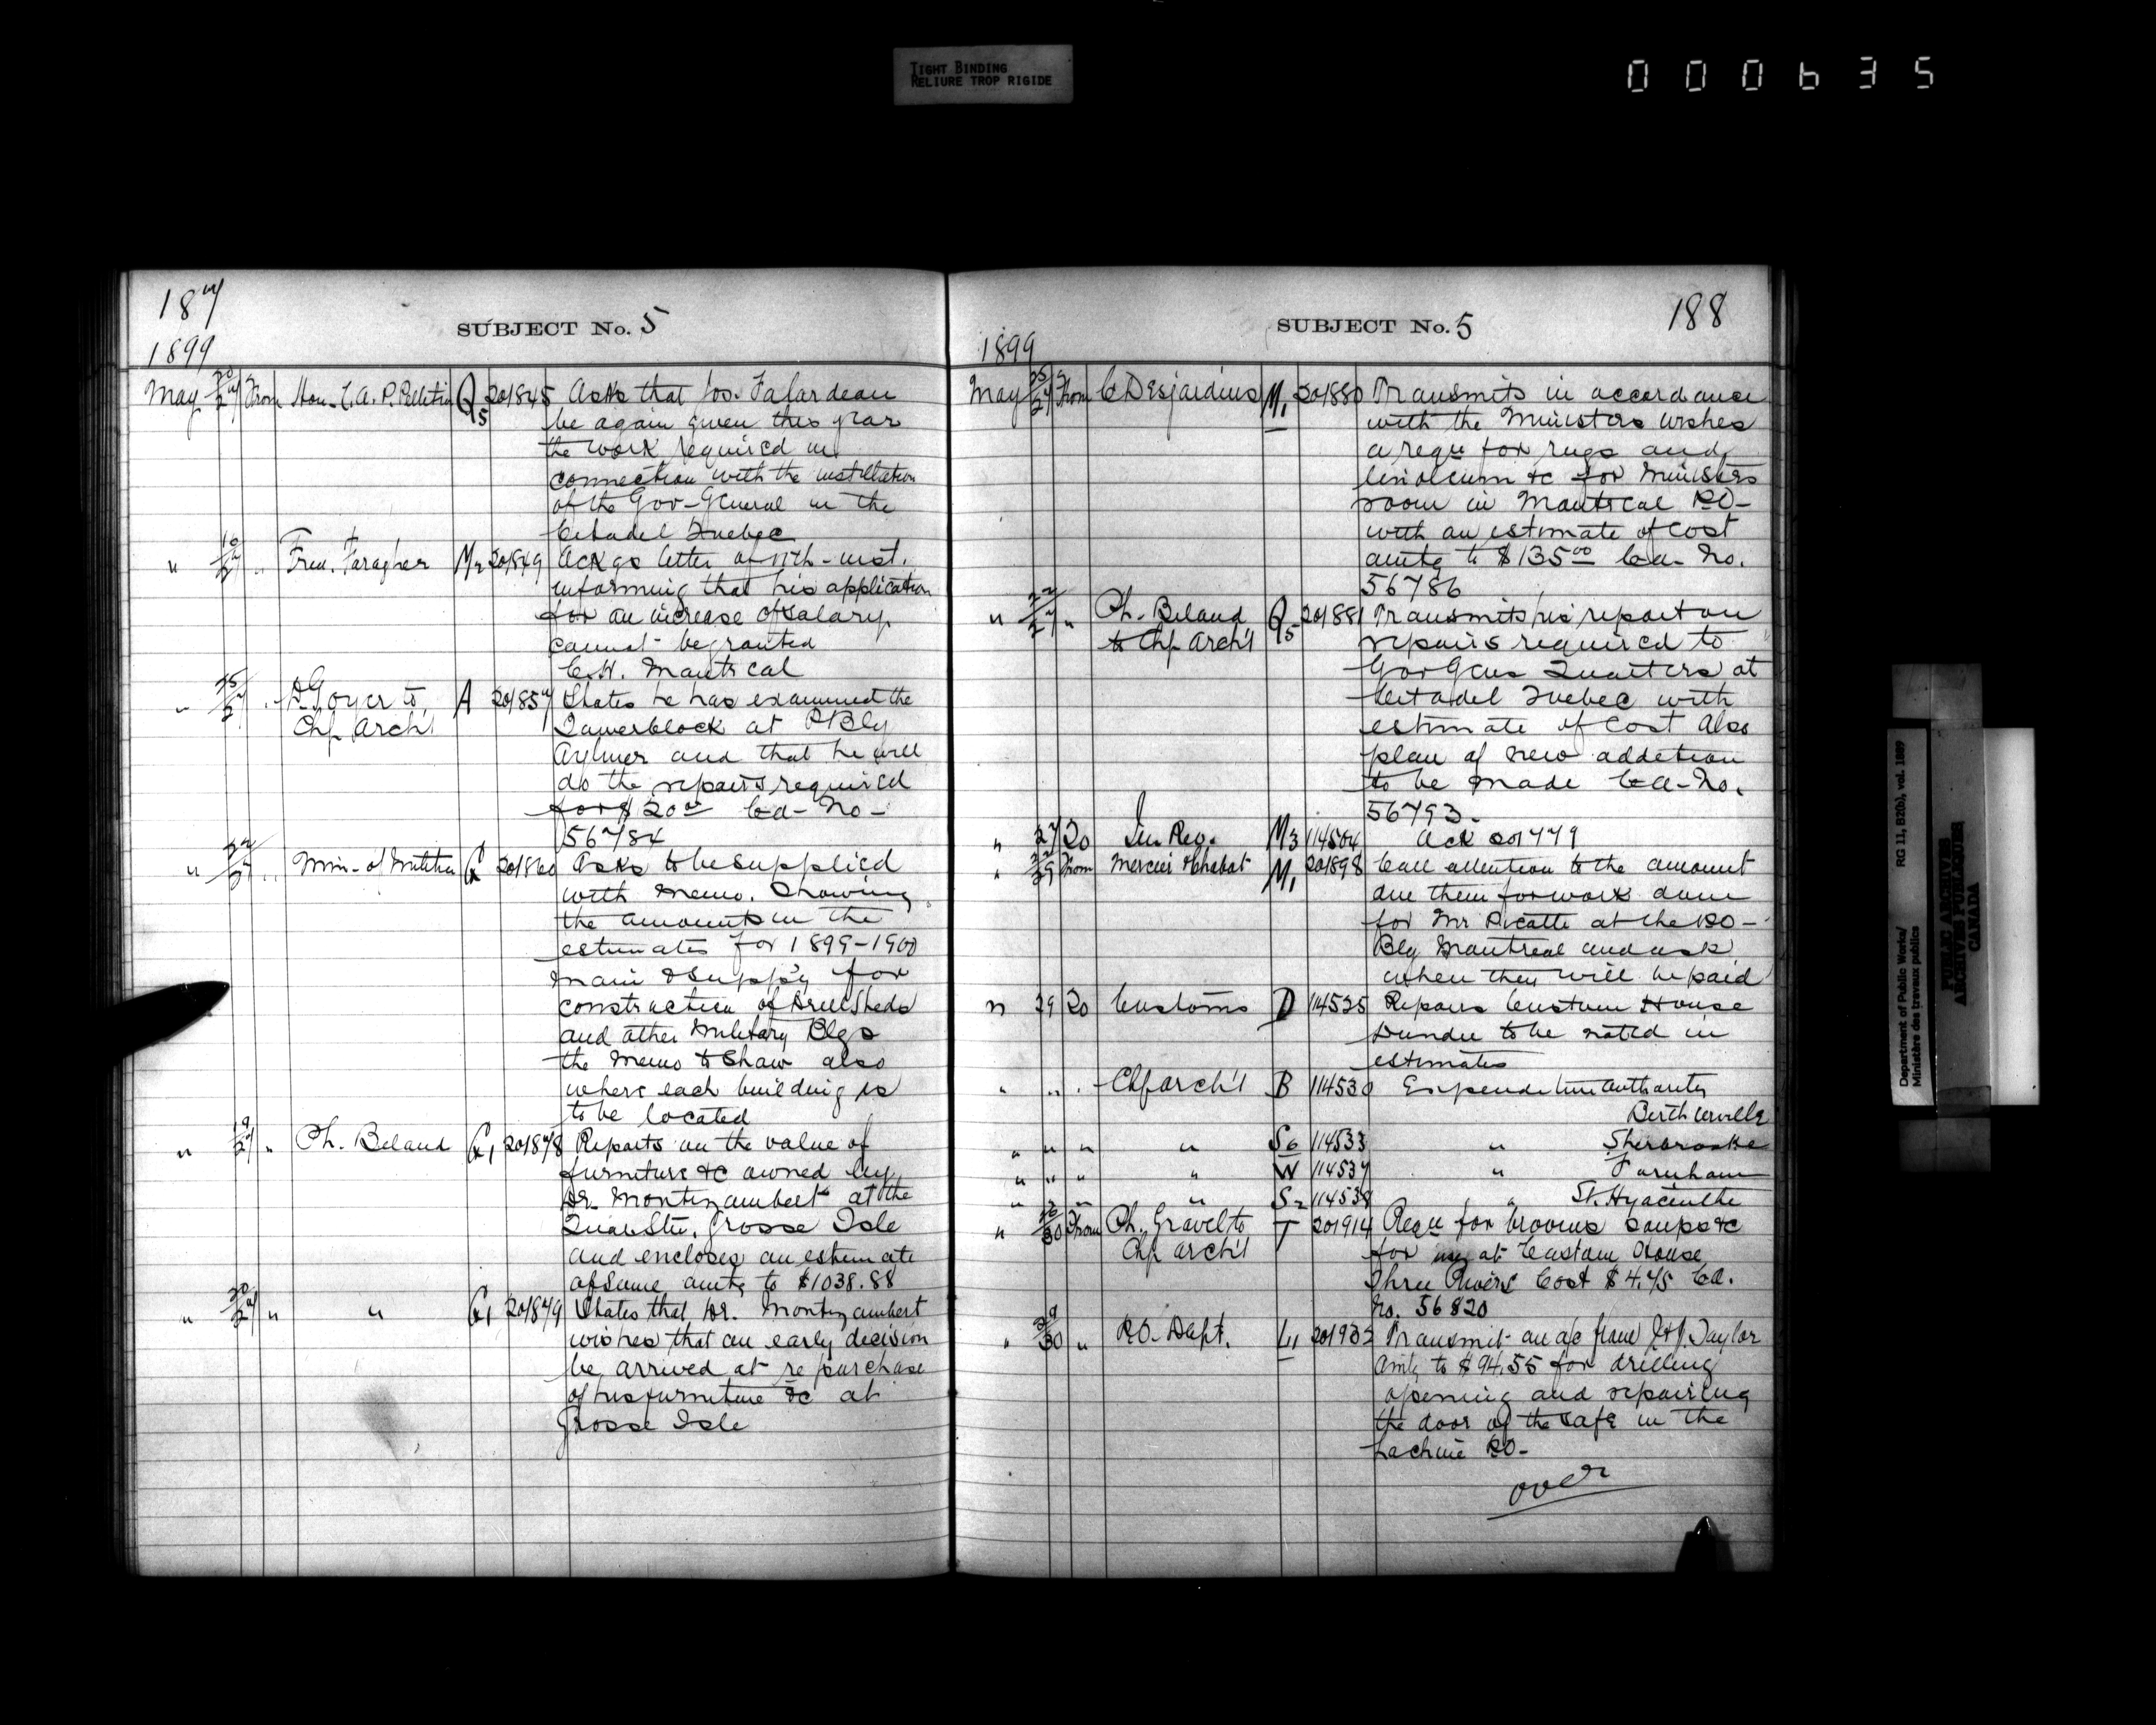 TIGHT BINDING
RELIURE TROP RIGIDE
000635
187
SUBJECT No. 5
1899
May 20/27 From Hon. C.A.P. Pelletier Q5 201845 Asks that Jos. Falardeau
be again given this year
the work required in
connection with the installation
of the Gov-General in the
Citadel Quebec
" 16/27 " Fred. Faragher M2 201849 Ackgs letter of 11th inst.
informing that his application
for an increase of salary
cannot be granted
C.H. Montreal
" 25/27 " D. Goyer to A 201857 States he has examined the
Chf Arch't Towerblock at PBlg
Aylmer and that he will
do the repairs required
for $20.00 Ca- No-
56784
" 22/27 " Min- of Militia G 201860 Asks to be supplied
with memo. Showing
the amounts in the
estimates for 1899-1900
main & supp'y for
construction of Drill Sheds
and other Military Blgs
the memo to Show also
where each building is
to be located
" 19/27 " Ph. Beland G1 201878 Reports on the value of
furniture &c owned by
Dr. Montizambert at the
Quar Stn, Grosse Isle
and encloses an estimate
of same amtg to $1038.88
" 20/27 " " G1 201879 States that Dr. Montizambert
wishes that an early decision
be arrived at re purchase
of his furniture &c at
Grosse Isle
188
SUBJECT No. 5
1899
May 25/27 From C Desjardins M1 201880 Transmits in accordance
with the Ministers wishes
a requ for rugs and
linoleum &c for Ministers
room in Montreal PO-
with an estimate of cost
amtg to $135.00 Ca- No.
56786
" 22/27 " Ph. Beland Q5 201881 Transmits his report on
to Chf Arch't repairs required to
Gov Gens Quarters at
Citadel Quebec with
estimate of cost Also
plan of new addition
to be made Ca-No.
56793-
" 27 20 In Rev. M3 114504 Ack 201779
" 27/29 From Mercier & Chabot M1 201898 Call attention to the amount
due them for work done
for Mr Picatte at the PO-
Blg Montreal and ask
when they will be paid
" 29 20 Customs D 114525 Repairs Custom House
Dundee to be noted in
estimates
" " " Chf Arch't B 114530 Expenditure Authority
Berthierville
" " " " S6 114533 " Sherbrooke
" " " " W 114537 " Farnham
" " " " S2 114538 " St. Hyacinthe
" 26/30 From Ph. Gravel to T 201914 Requ for brooms soaps &c
Chf Arch't for use at Custom House
Three Rivers Cost $4.45 Ca.
No. 56820
" 29/30 " P.O. Dept. L1 201932 Transmit an a/c from J&J. Taylor
Amtg to $94.55 for drilling
opening and repairing
the door of the safe in the
Lachine PO-
over
Department of Public Works/
Ministère des travaux publics
RG 11, B2(b), vol. 1867
PUBLIC ARCHIVES
ARCHIVES PUBLIQUES
CANADA